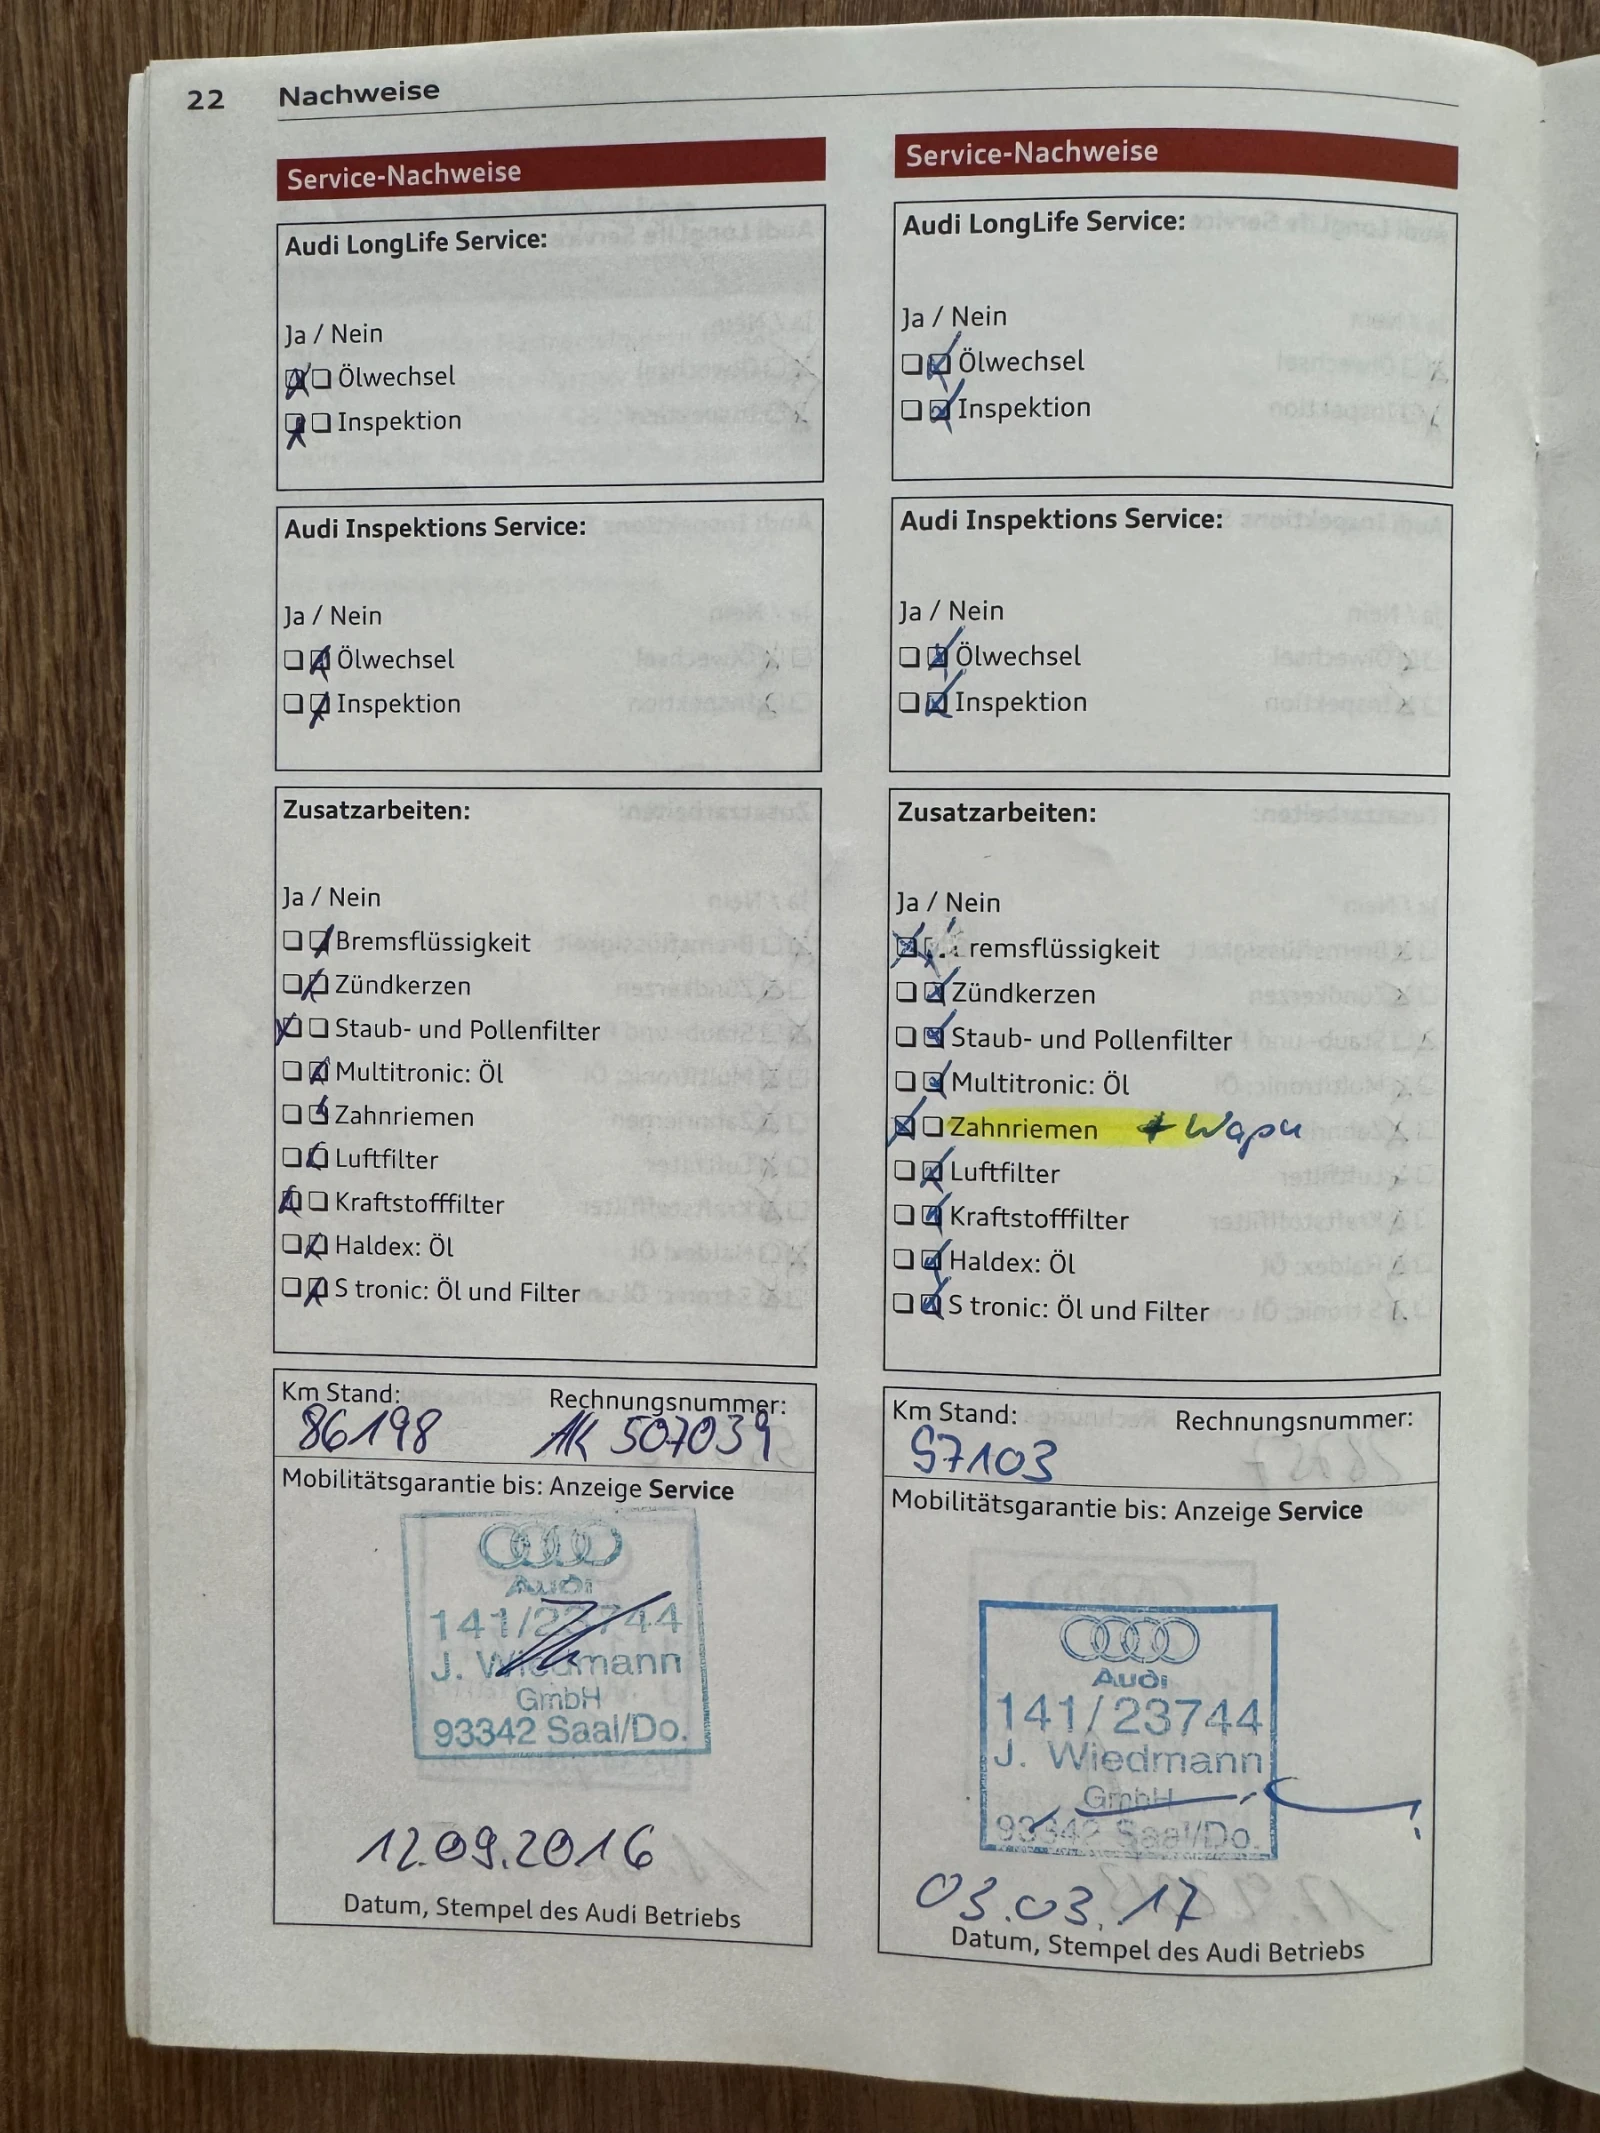 22 Nachweise
Service-Nachweise
Audi LongLife Service:
Ja / Nein
Ölwechsel
Inspektion
Audi Inspektions Service:
Ja / Nein
Ölwechsel
Inspektion
Zusatzarbeiten:
Ja / Nein
Bremsflüssigkeit
Zündkerzen
Staub- und Pollenfilter
Multitronic: Öl
Zahnriemen
Luftfilter
Kraftstofffilter
Haldex: Öl
S tronic: Öl und Filter
Km Stand: Rechnungsnummer:
86198 AK 507039
Mobilitätsgarantie bis: Anzeige Service
Audi
141/23744
J. Wiedmann
GmbH
93342 Saal/Do.
12.09.2016
Datum, Stempel des Audi Betriebs
Service-Nachweise
Audi LongLife Service:
Ja / Nein
Ölwechsel
Inspektion
Audi Inspektions Service:
Ja / Nein
Ölwechsel
Inspektion
Zusatzarbeiten:
Ja / Nein
remsflüssigkeit
Zündkerzen
Staub- und Pollenfilter
Multitronic: Öl
Zahnriemen + Wapu
Luftfilter
Kraftstofffilter
Haldex: Öl
S tronic: Öl und Filter
Km Stand: Rechnungsnummer:
97103
Mobilitätsgarantie bis: Anzeige Service
Audi
141/23744
J. Wiedmann
GmbH
93342 Saal/Do.
03.03.17
Datum, Stempel des Audi Betriebs